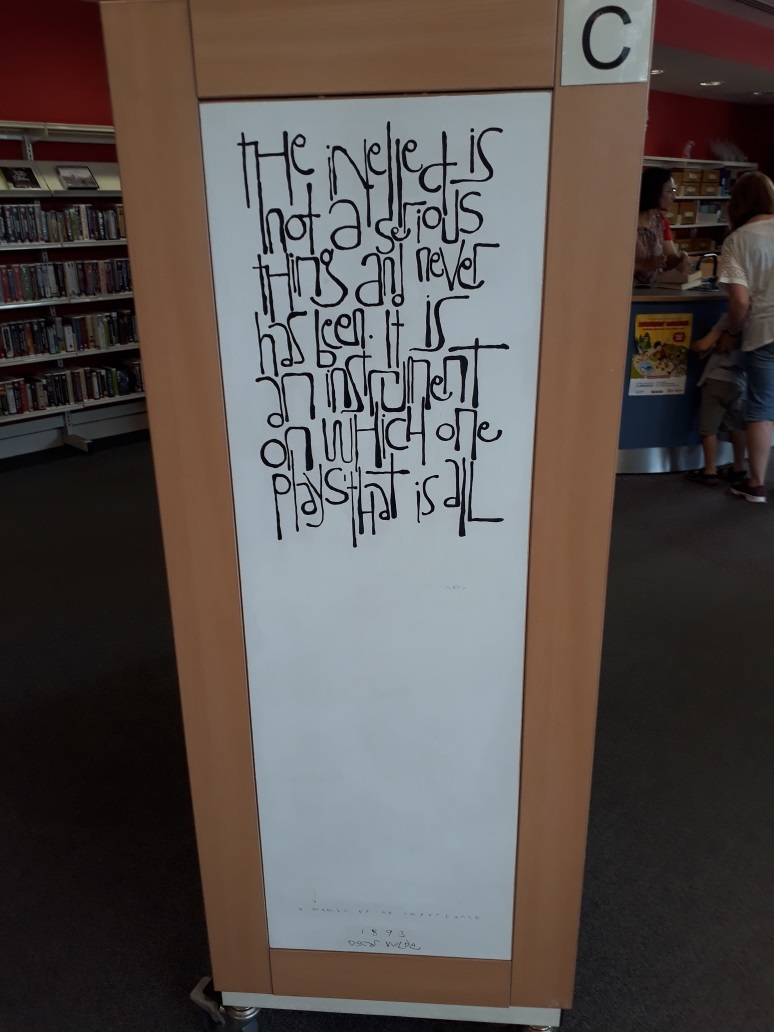 C
THe iNellect is
not a serious
THing and never
has been. It is
an instrument
on WHicH one
plays tHat is all
a woman of no importance
1893
oscar wilde